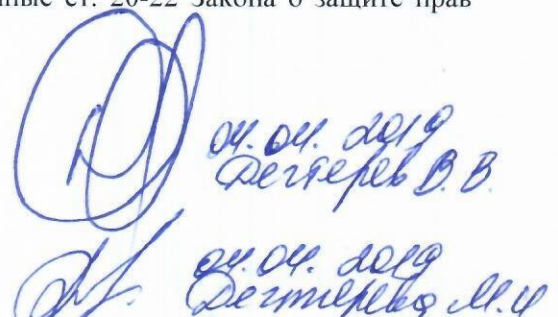 нные ст. 20-22 Закона о защите прав
04.04.2019
Дегтерев В.В.
04.04.2019
Дегтерева М.И